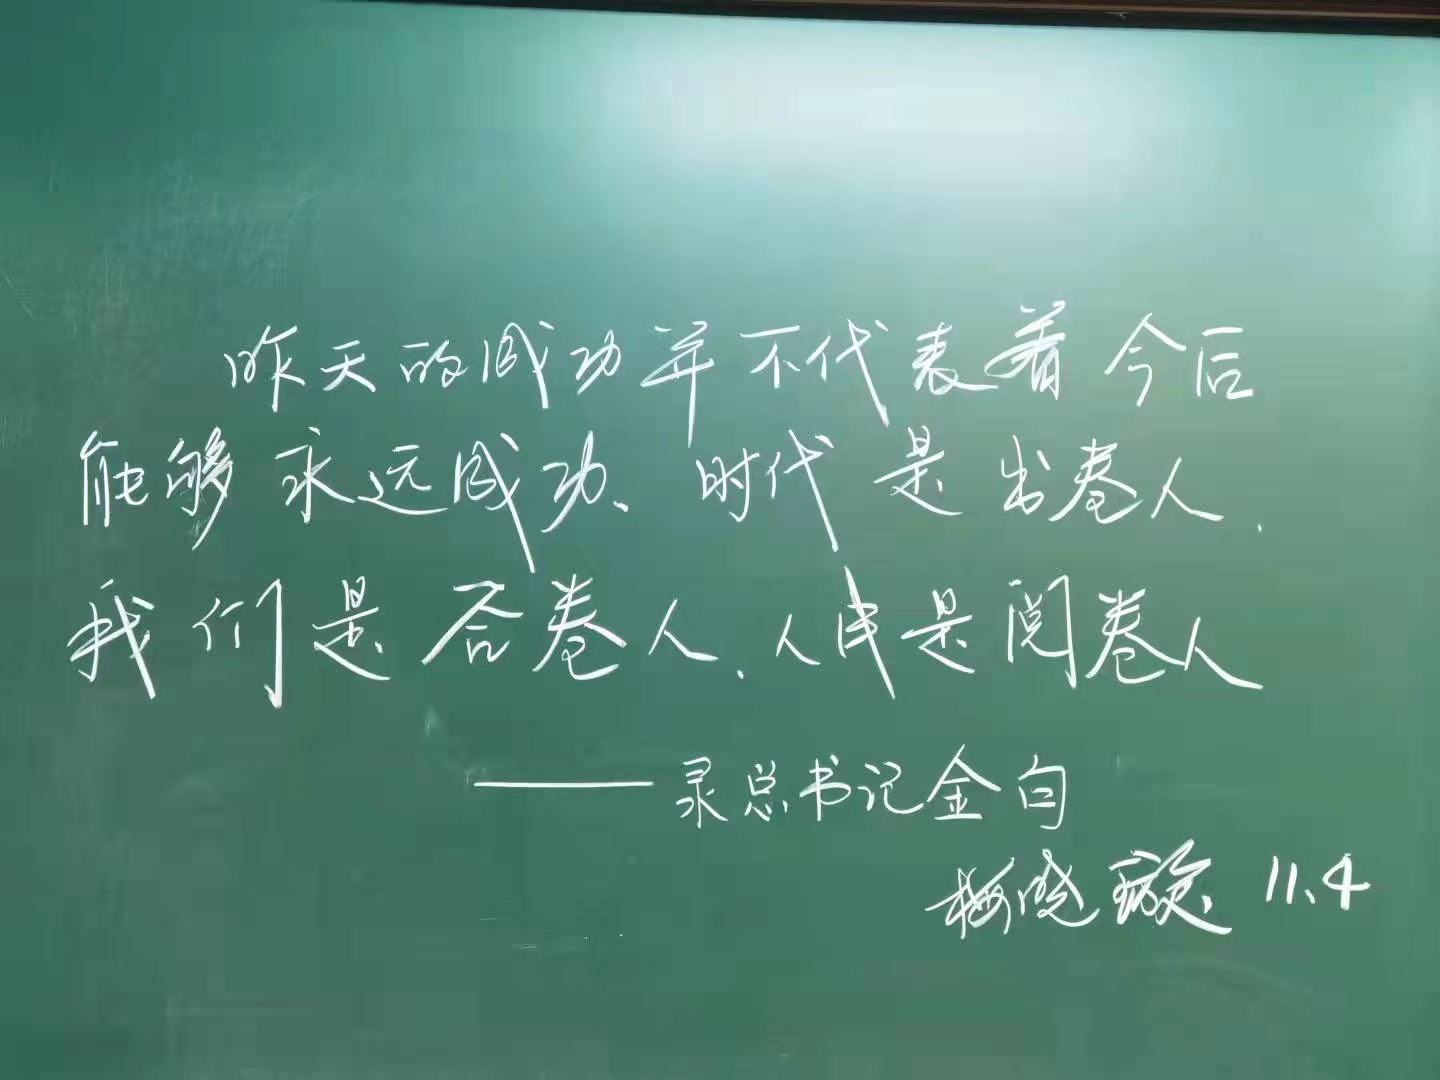 昨天的成功并不代表着今后
能够永远成功、时代是出卷人.
我们是答卷人、人民是阅卷人
——录总书记金句
梅晓璇 11.4